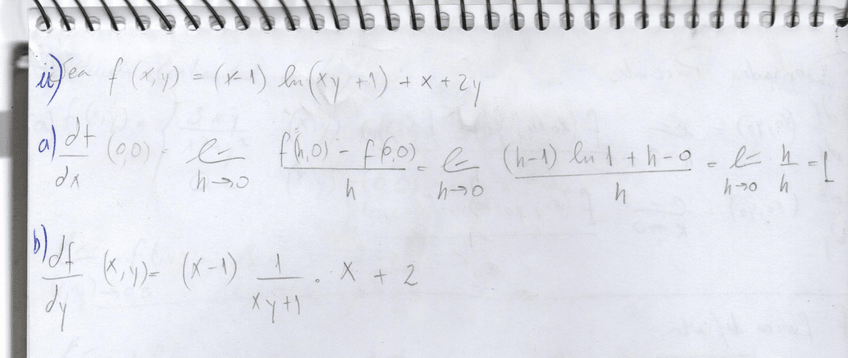 ii) Sea f (x,y) = (x-1) ln(xy+1) + x + 2y
a) df/dx (0,0) = lim h→0 (f(h,0) - f(0,0))/h = lim h→0 ((h-1) ln 1 + h - 0)/h = lim h→0 h/h = 1
b) df/dy (x,y) = (x-1) 1/(xy+1) · x + 2